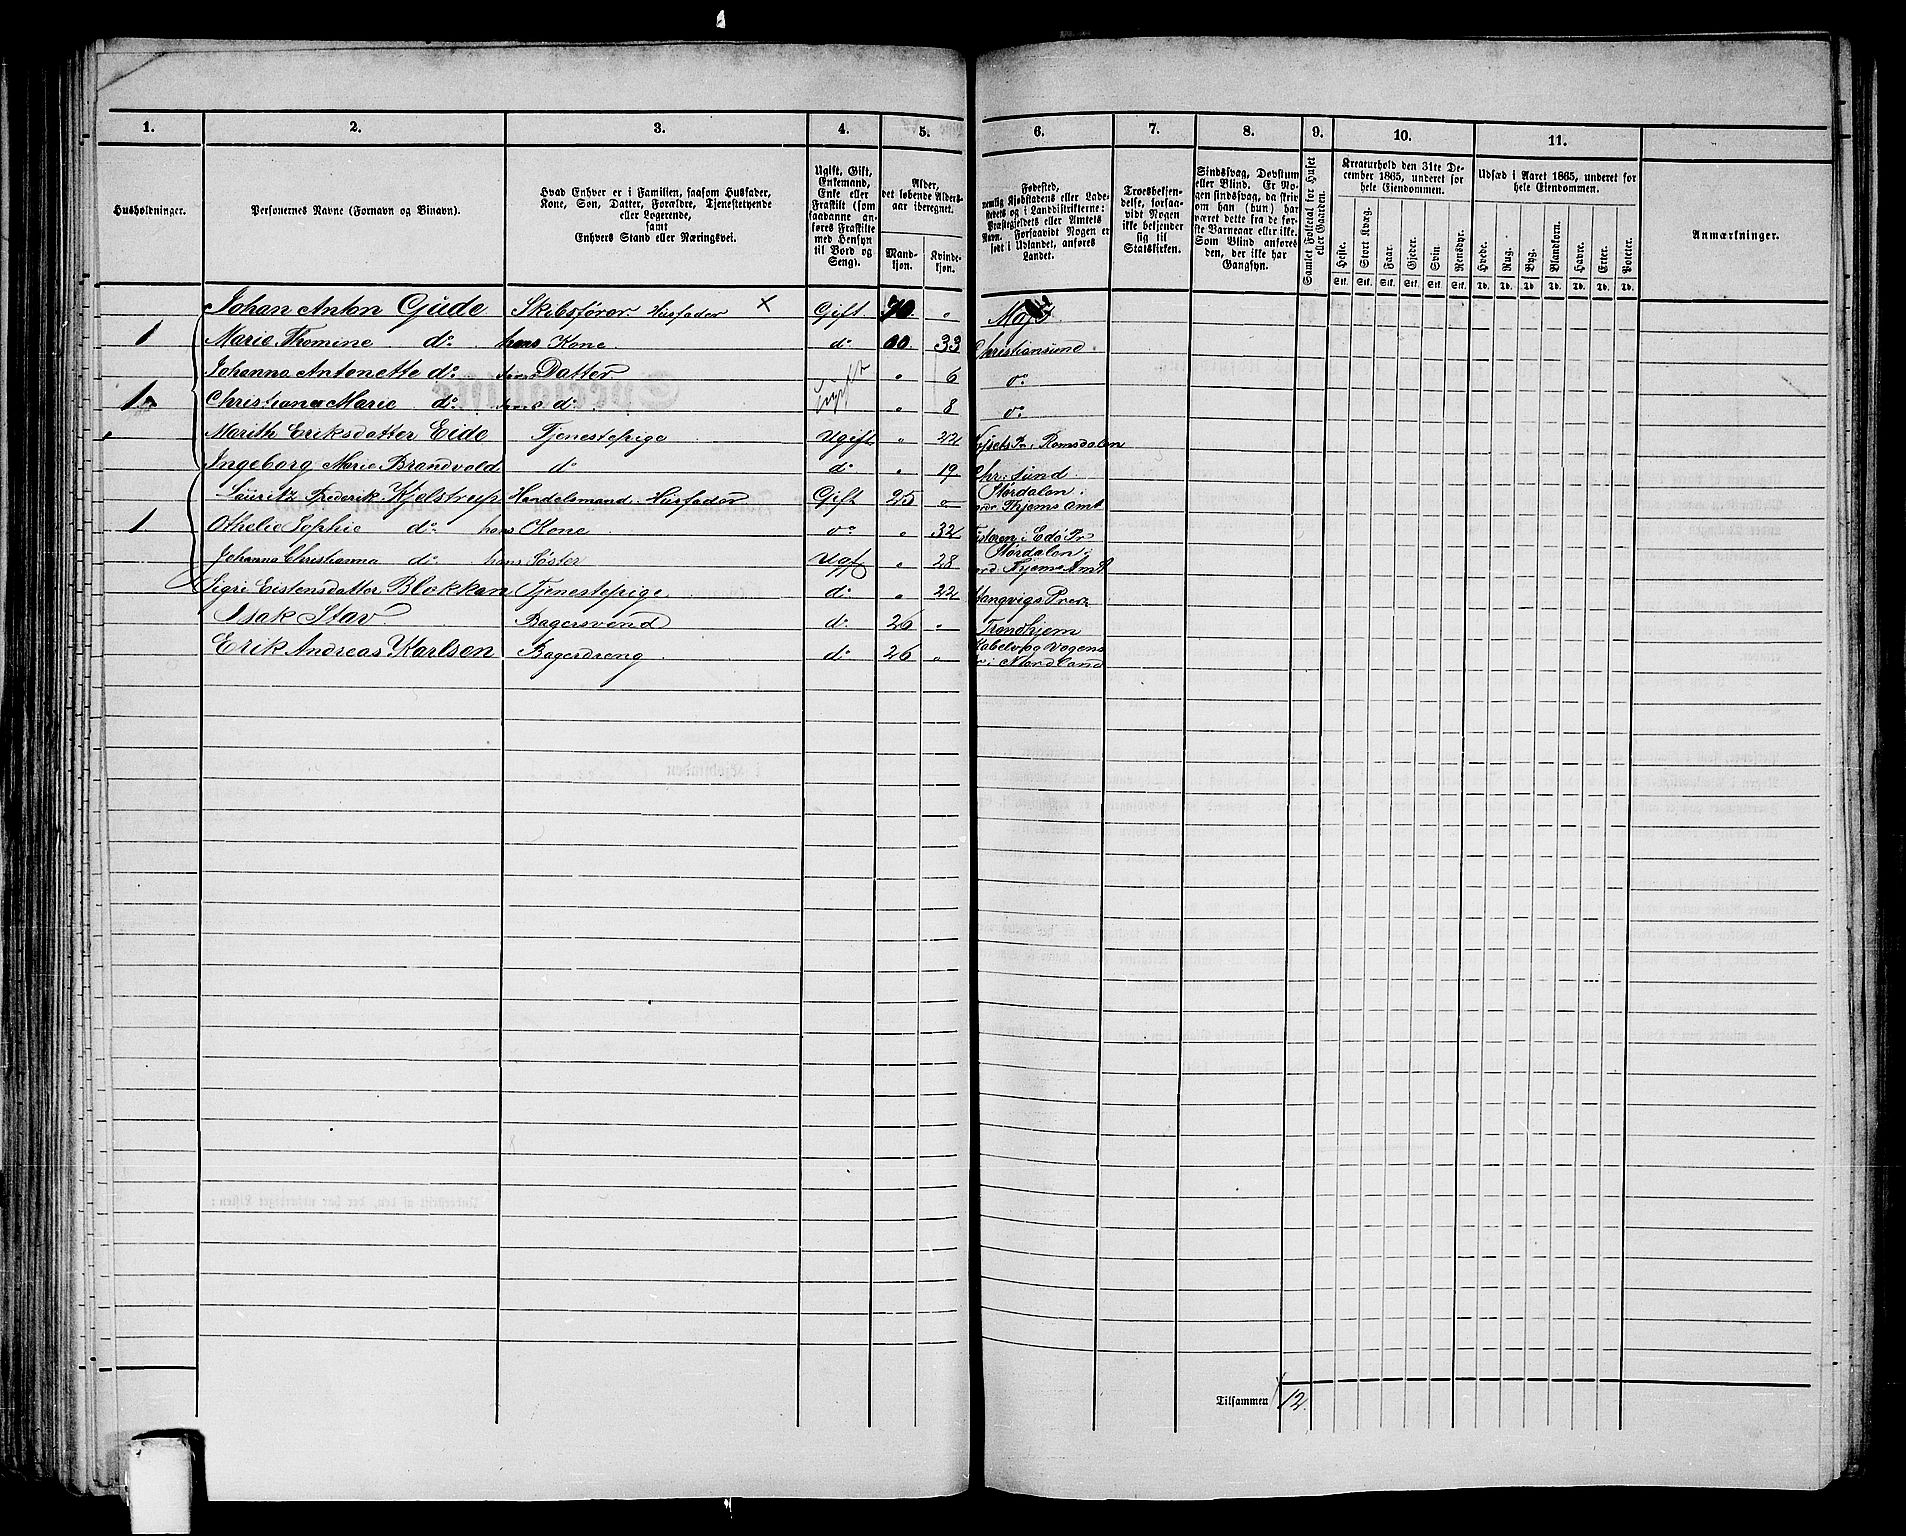 1. 2. 3. 4. 5. 6. 7. 8. 9. 10. 11.
Husholdninger.
Personernes Navne (Fornavn og Binavn).
Hvad Enhver er i Familien, saasom Husfader,
Kone, Søn, Datter, Forældre, Tjenestetyende
eller Logerende,
samt
Enhvers Stand eller Næringsvei.
Ugift, Gift,
Enkemand,
Enke eller
Fraskilt (som
saadanne an-
føres Fraskilte
med Hensyn
til Bord og
Seng).
Alder,
det løbende Alders-
aar iberegnet.
Mand-
kjøn.
Kvinde-
kjøn.
Fødested,
nemlig Kjøbstadens eller Lade-
stedets og i Landdistrikterne:
Præstegjeldets eller Amtets
Navn. Forsaavidt Nogen er
født i Udlandet, anføres
Landet.
Troesbekjen-
delse, forsaa-
vidt Nogen
ikke bekjender
sig til
Statskirken.
Sindssvag, Døvstum
eller Blind. Er No-
gen sindssvag, da skriv
om han (hun) har
været dette fra de før-
ste Barneaar eller ikke.
Som Blind anføres
den, der ikke har
Gangsyn.
Samlet Folketal for Huset
eller Gaarden.
Kreaturhold den 31te De-
cember 1865, underet for
hele Eiendommen.
Heste. Stort Kvæg. Faar. Gjeder. Svin. Rensdyr.
Stk. Stk. Stk. Stk. Stk. Stk.
Udsæd i Aaret 1865, underet for
hele Eiendommen.
Hvede. Rug. Byg. Blandkorn. Havre. Erter. Poteter.
Td. Td. Td. Td. Td. Td. Td.
Anmærkninger.
Johan Anton Gude Skibsfører Husfader × Gift 70 "
1 Marie Thomine do hans Kone do 33 Christiansund
Johanna Antonette do hans Datter " 6 do
1 Christiana Marie do hans do " 8 do
Marith Eriksdatter Eide Tjenestepige Ugift " 22 Romsdalen
Ingeborg Marie Brandvold do do " 19 Chr: sund
Lauritz Frederik Kjelstrup Handelsmand Husfader Gift 25 " Størdalen i
Thjems Amt
1 Othelie Sophie do hans Kone do " 32 Edø Pr
Johanna Christianna do hans Søster Ugft " 28 Størdalen i
Thjems Amt
Sigri Eistensdatter Blekken Tjenestepige do " 22 Stangvigs Præ
Isak Stav Bagersvend do 26 " Trondhjem
Erik Andreas Karlsen Bagerdreng do 26 " Kabelvog Vogens
Pr: i Nordland
Tilsammen 12.